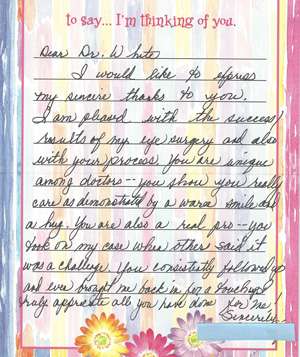 to say... I'm thinking of you.
Dear Dr. White,
I would like to express
my sincere thanks to you.
I am pleased with the success/
results of my eye surgery and also
with your process. You are unique
among doctors -- you show you really
care as demonstrated by a warm smile and
a hug. You are also a real pro -- you
took on my case when other said it
was a challenge. You consistently followed up
and even brought me back in for a touchup. I
truly appreciate all you have done for me!
Sincerely,